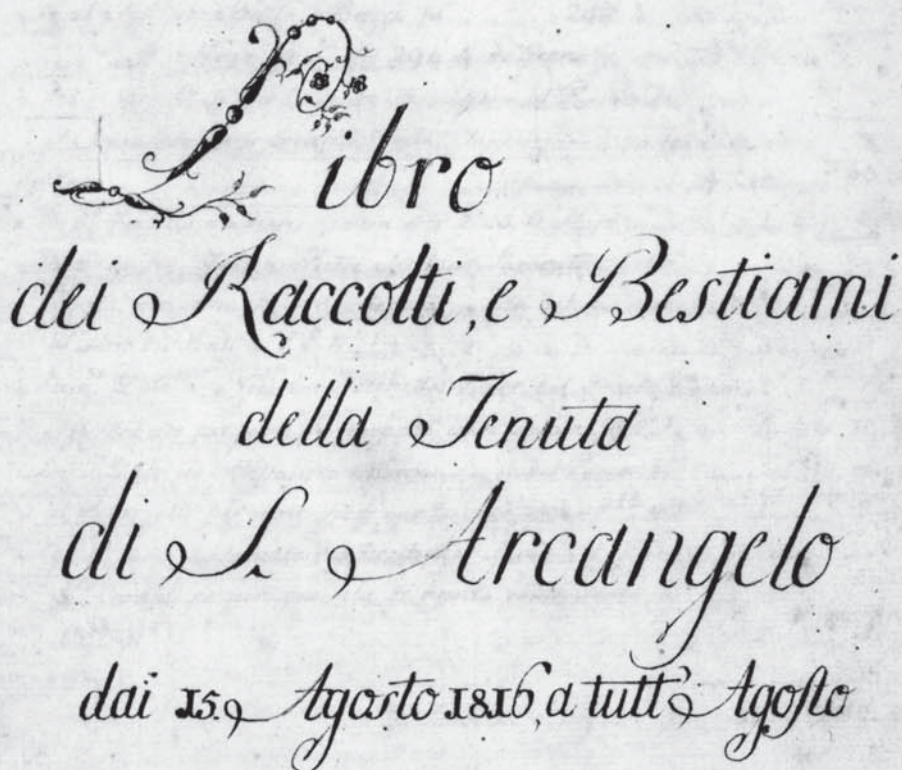 Libro
dei Raccolti, e Bestiami
della Tenuta
di S. Arcangelo
dai 15. Agosto 1816, a tutt' Agosto